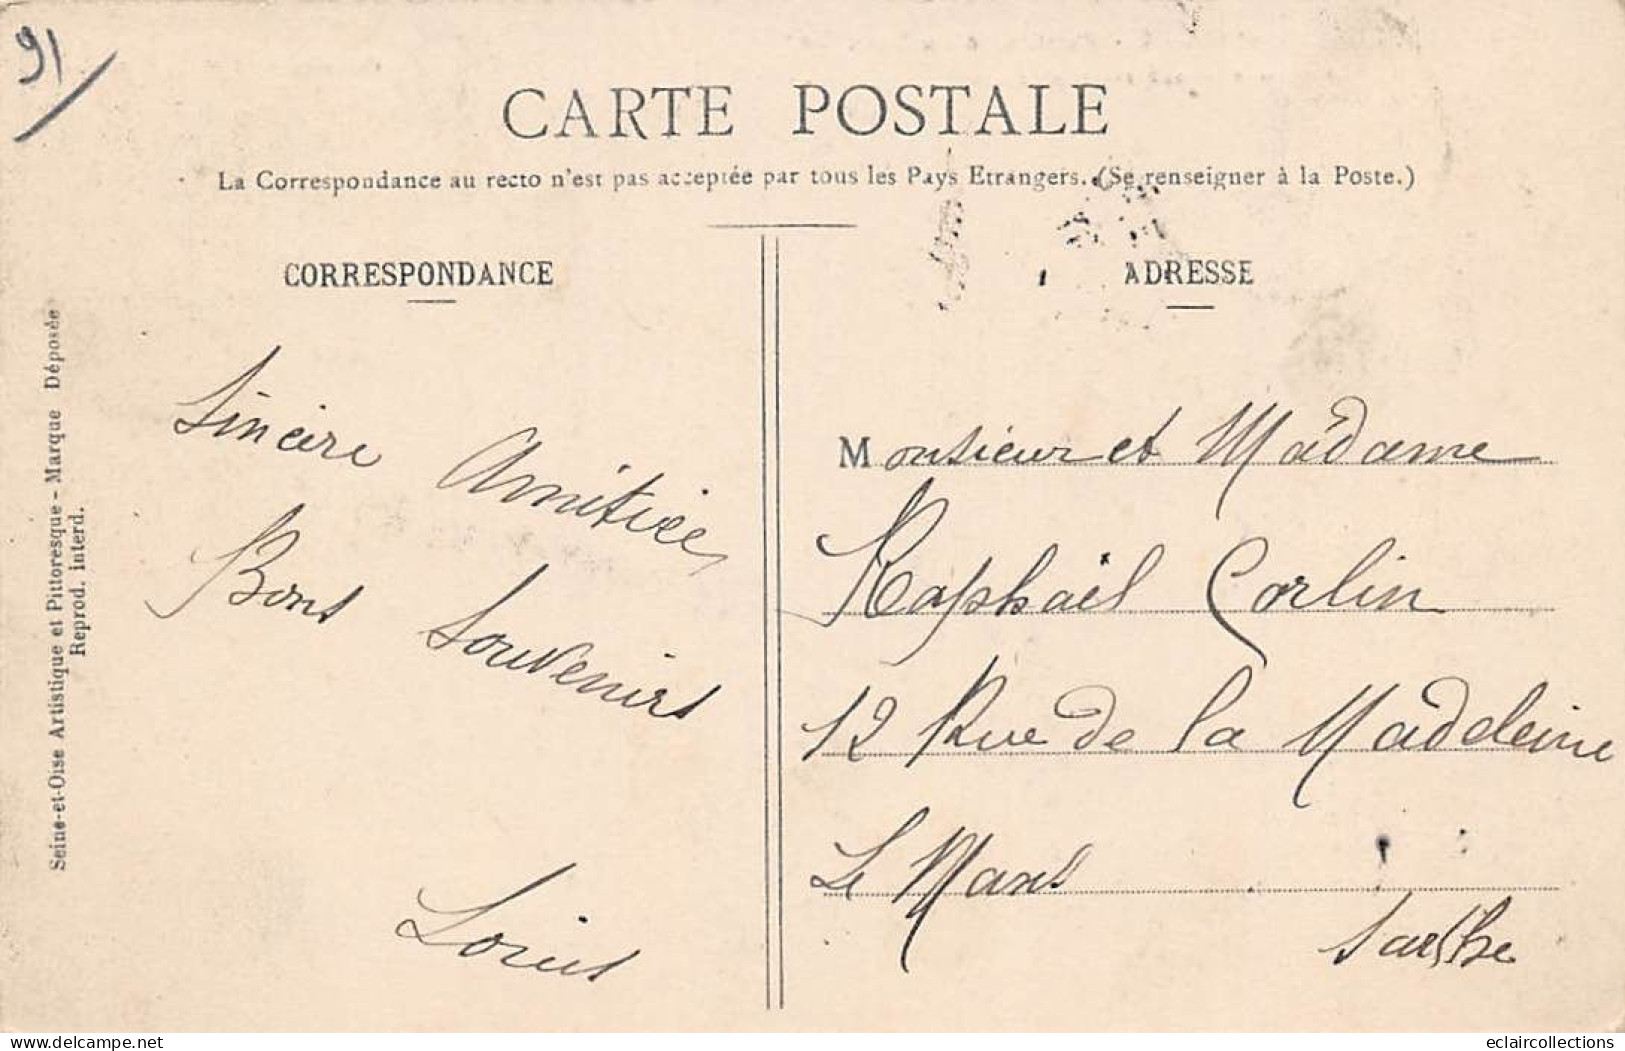 91
CARTE POSTALE
La Correspondance au recto n'est pas acceptée par tous les Pays Etrangers. (Se renseigner à la Poste.)
CORRESPONDANCE
ADRESSE
Seine-et-Oise Artistique et Pittoresque - Marque Déposée
Reprod. interd.
Sincère Amitiée
Bons Souvenirs
Louis
Monsieur et Madame
Raphaël Corlin
12 Rue de la Madeleine
Le Mans
Sarthe
www.delcampe.net
eclaircollections